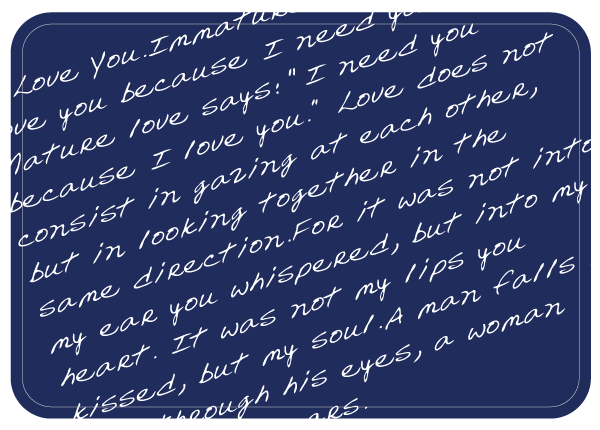 Love You.Immature
you because I need
Mature love says:"I need you
because I love you." Love does not
consist in gazing at each other,
but in looking together in the
same direction.For it was not into
my ear you whispered, but into my
heart. It was not my lips you
kissed, but my soul.A man falls
through his eyes, a woman